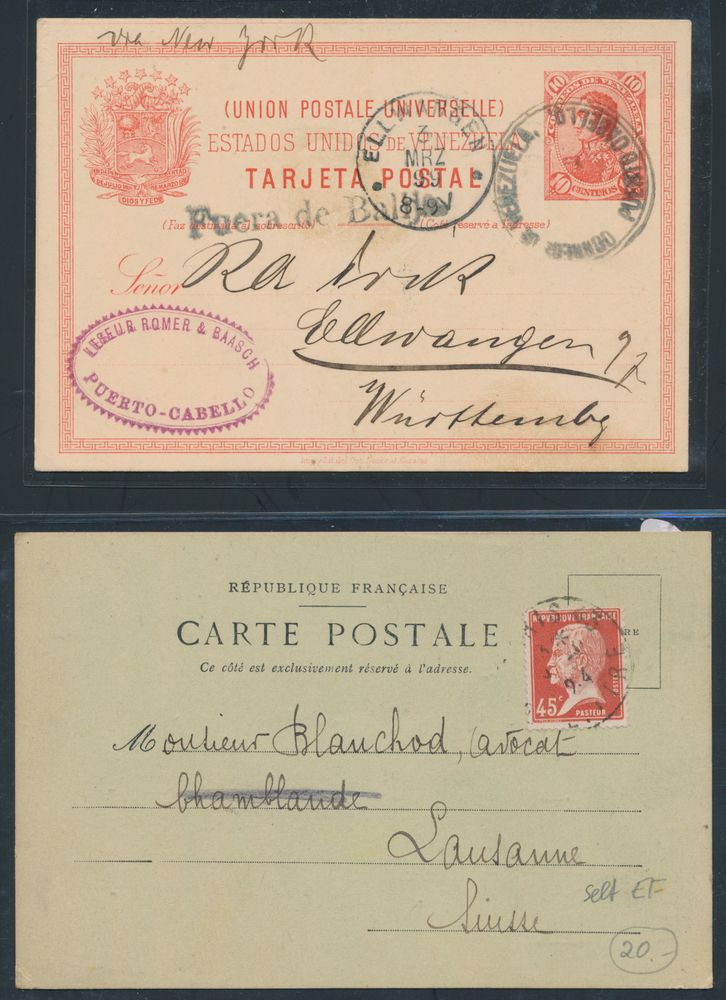 via New York
(UNION POSTALE UNIVERSELLE)
ESTADOS UNIDOS DE VENEZUELA
TARJETA POSTAL
DIOS Y FEDE
10 10
CORREOS DE VENEZUELA
10 CENTIMOS
ELLWANGEN
3
MRZ
99
8-9V
CORREOS DE VENEZUELA. PUERTO CABELLO.
Fuera de Balija
(Côté réservé a l'adresse)
Señor
Ellwangen
Württembg
LESEUR ROMER & BAASCH
PUERTO-CABELLO
RÉPUBLIQUE FRANÇAISE
CARTE POSTALE
Ce côté est exclusivement réservé à l'adresse.
REPUBLIQUE FRANÇAISE
POSTES
45c
PASTEUR
Monsieur Blanchod, avocat
Chamblande
Lausanne
Suisse
selt EF
20.-